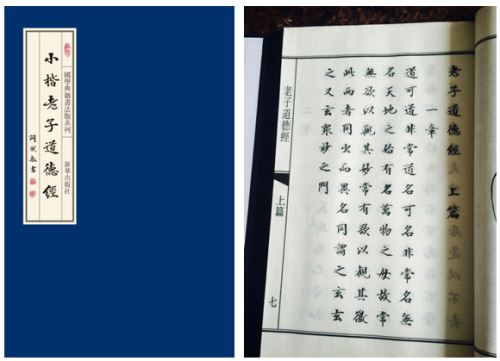 國學典籍書法版系列
新華出版社
小楷老子道德經
書
老子道德經 上篇
一章
道可道非常道名可名非常名無
名天地之始有名萬物之母故常
無欲以觀其妙常有欲以觀其徼
此兩者同出而異名同謂之玄玄
之又玄衆妙之門
老子道德經
上篇
七